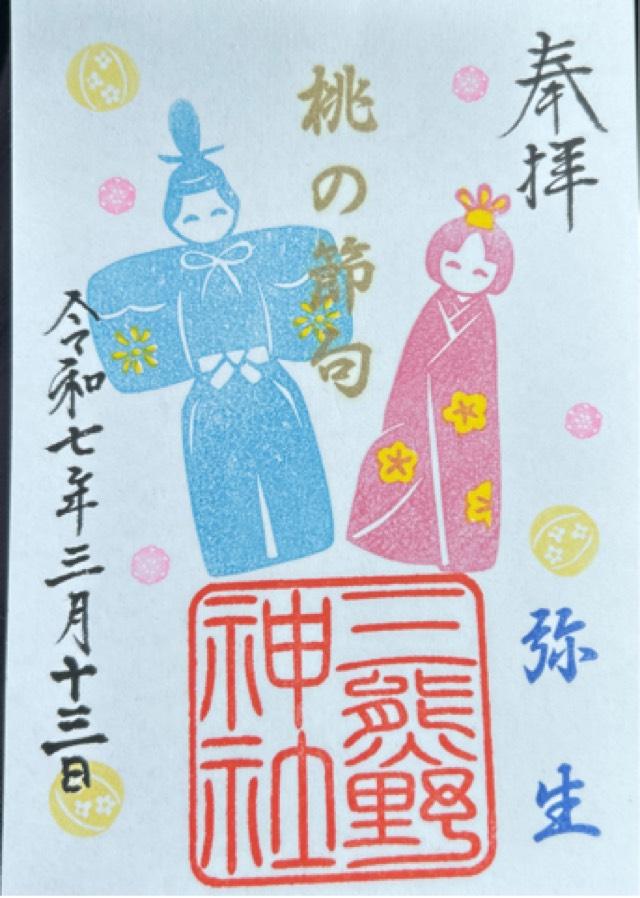 奉拝
桃の節句
弥生
三熊野
神社
令和七年三月十三日